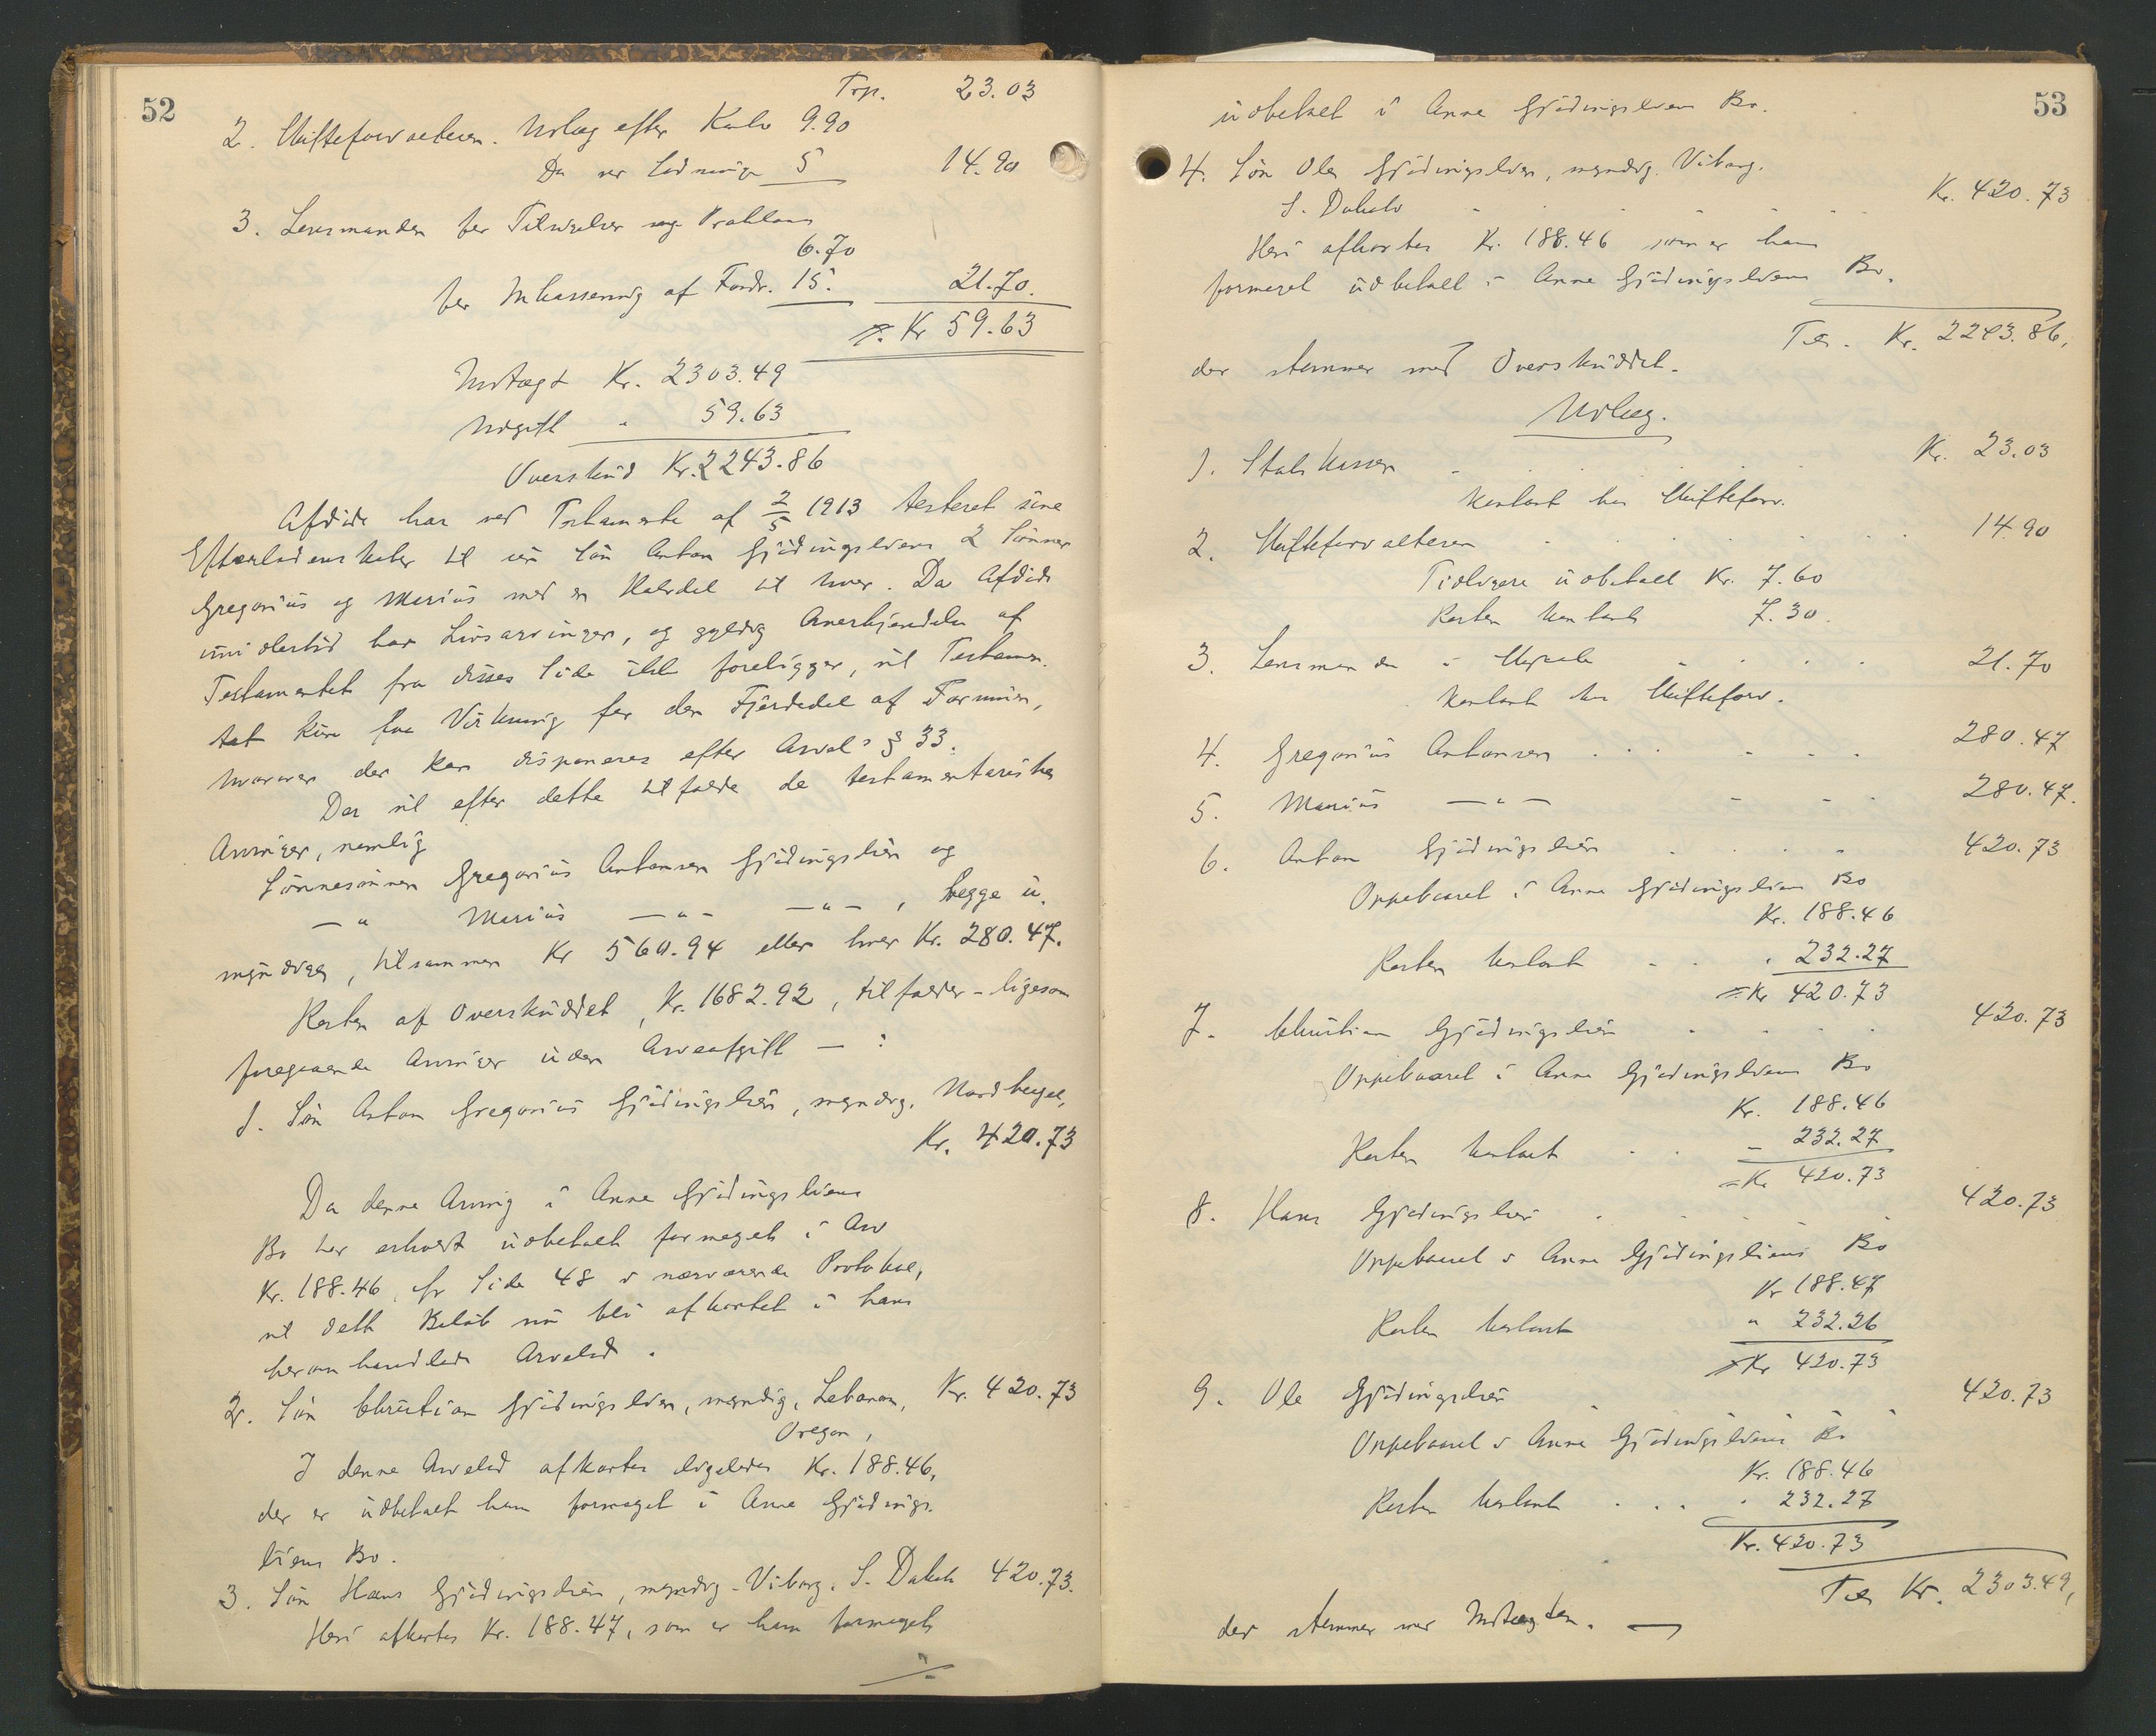 52
Trp. 23.03
2. Skifteforvalteren. Utlæg efter Konto 9.90
Da ver Lodninge 5 14.90
3. Lensmanden for Tilsigelser og Proklama
6.70
for Inkassering af Fordr. 15. 21.70.
= Kr 59.63
Indtægt Kr. 2303.49
Udgift " 59.63
Overskud Kr. 2243.86
Afdøde har ved Testamente af 2/5 1913 testeret sine
Efterladenskaber til sin Søn Anton Gjødingsliens 2 Sønner
Gregorius og Marius med en Halvdel til hver. Da Afdøde
imidlertid har Livsarvinger, og gyldig Anerkjendelse af
Testamentet fra disses Side ikke foreligger, vil Testamen-
tet kun faa Virkning for den Fjerdedel af Formuen,
hvorover der kan disponeres efter Arvel. § 33.
Der vil efter dette tilfalde de testamentariske
Arvinger, nemlig
Sønnesønnen Gregorius Antonsen Gjødingslien og
— " Marius — " — — " — , begge u.
myndige, tilsammen Kr 560.94 eller hver Kr. 280.47.
Resten af Overskuddet, Kr. 1682.92, tilfalder - ligesom
foregaaende Arvinger uden Arveafgift — :
1. Søn Anton Gregorius Gjødingslien, myndig,
Kr. 420.73
Da denne Arving i Anne Gjødingsliens
Bo har erholdt udbetalt formeget i Arv
Kr. 188.46, cfr Side 48 i nærværende Protokol,
vil dette Beløb nu bli afkortet i hans
heromhandlede Arvelod.
2. Søn Christian Gjødingslien, myndig, Lebanon, Kr. 420.73
Oregon,
I denne Arvelod afkortes ligeledes Kr. 188.46,
der er udbetalt ham formeget i Anne Gjødings-
liens Bo.
3. Søn Hans Gjødingslien, myndig, Viborg, S. Dakota 420.73.
Heri afkortes Kr. 188.47, som er ham formeget
./.
53
udbetalt i Anne Gjødingsliens Bo.
4. Søn Ole Gjødingslien, myndig, Viborg,
S. Dakota Kr. 420.73
Heri afkortes Kr. 188.46 som er ham
formeget udbetalt i Anne Gjødingsliens Bo.
Tils. Kr. 2243.86,
der stemmer med Overskuddet.
Udlæg.
1. Statskassen Kr. 23.03
kontant hos Skifteforv.
2. Skifteforvalteren 14.90
Tidligere udbetalt Kr. 7.60
Resten kontant 7.30.
3. Lensmanden i 21.70
kontant hos Skifteforv.
4. Gregorius Antonsen 280.47
5. Marius — " — 280.47.
6. Anton Gjødingslien 420.73
Oppebaaret i Anne Gjødingsliens Bo
Kr. 188.46
Resten kontant " 232.27
= Kr 420.73
7. Christian Gjødingslien 420.73
Oppebaaret i Anne Gjødingsliens Bo
Kr. 188.46
Resten kontant - 232.27
= Kr 420.73
8. Hans Gjødingslien 420.73
Oppebaaret i Anne Gjødingsliens Bo
Kr 188.47
Resten kontant " 232.26
= Kr 420.73
9. Ole Gjødingslien 420.73
Oppebaaret i Anne Gjødingsliens Bo
Kr. 188.46
Resten kontant . . . " 232.27
Kr. 420.73
Tils Kr. 2303.49,
der stemmer med Indtægten. —